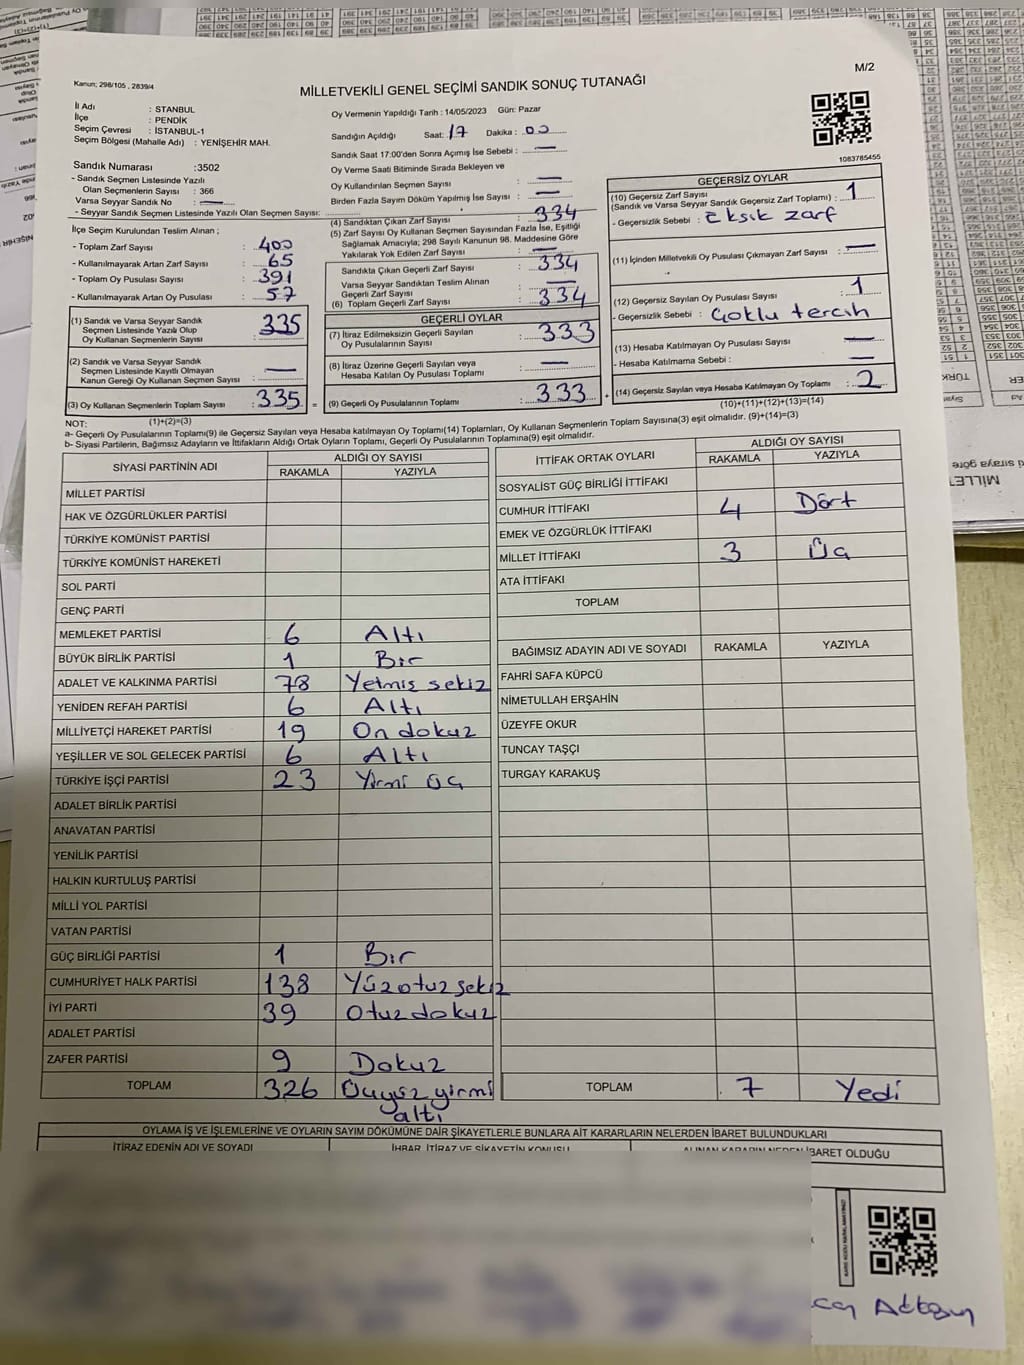 Kanun; 298/105 , 2839/4
MİLLETVEKİLİ GENEL SEÇİMİ SANDIK SONUÇ TUTANAĞI
M/2
İl Adı : STANBUL
İlçe : PENDİK
Seçim Çevresi : İSTANBUL-1
Seçim Bölgesi (Mahalle Adı) : YENİŞEHİR MAH.
Sandık Numarası :3502
- Sandık Seçmen Listesinde Yazılı
Olan Seçmenlerin Sayısı : 366
Varsa Seyyar Sandık No : —
- Seyyar Sandık Seçmen Listesinde Yazılı Olan Seçmen Sayısı:
İlçe Seçim Kurulundan Teslim Alınan ;
- Toplam Zarf Sayısı : 400
- Kullanılmayarak Artan Zarf Sayısı : 65
- Toplam Oy Pusulası Sayısı : 391
- Kullanılmayarak Artan Oy Pusulası : 57
(1) Sandık ve Varsa Seyyar Sandık
Seçmen Listesinde Yazılı Olup
Oy Kullanan Seçmenlerin Sayısı : 335
(2) Sandık ve Varsa Seyyar Sandık
Seçmen Listesinde Kayıtlı Olmayan
Kanun Gereği Oy Kullanan Seçmen Sayısı : —
(3) Oy Kullanan Seçmenlerin Toplam Sayısı : 335 =
Oy Vermenin Yapıldığı Tarih : 14/05/2023 Gün: Pazar
Sandığın Açıldığı Saat: 17 Dakika : 00
Sandık Saat 17:00'den Sonra Açımış İse Sebebi : —
Oy Verme Saati Bitiminde Sırada Bekleyen ve
Oy Kullandırılan Seçmen Sayısı : —
Birden Fazla Sayım Döküm Yapılmış İse Sayısı : —
(4) Sandıktan Çıkan Zarf Sayısı : 334
(5) Zarf Sayısı Oy Kullanan Seçmen Sayısından Fazla İse, Eşitliği
Sağlamak Amacıyla; 298 Sayılı Kanunun 98. Maddesine Göre
Yakılarak Yok Edilen Zarf Sayısı : —
Sandıkta Çıkan Geçerli Zarf Sayısı : 334
Varsa Seyyar Sandıktan Teslim Alınan
Geçerli Zarf Sayısı : —
(6) Toplam Geçerli Zarf Sayısı : 334
GEÇERLİ OYLAR
(7) İtiraz Edilmeksizin Geçerli Sayılan
Oy Pusulalarının Sayısı : 333
(8) İtiraz Üzerine Geçerli Sayılan veya
Hesaba Katılan Oy Pusulası Toplamı : —
(9) Geçerli Oy Pusulalarının Toplamı : 333 +
1083785455
GEÇERSİZ OYLAR
(10) Geçersiz Zarf Sayısı
(Sandık ve Varsa Seyyar Sandık Geçersiz Zarf Toplamı) : 1
- Geçersizlik Sebebi : Eksik zarf
(11) İçinden Milletvekili Oy Pusulası Çıkmayan Zarf Sayısı : —
(12) Geçersiz Sayılan Oy Pusulası Sayısı : 1
- Geçersizlik Sebebi : Çoklu tercih
(13) Hesaba Katılmayan Oy Pusulası Sayısı : —
- Hesaba Katılmama Sebebi : —
(14) Geçersiz Sayılan veya Hesaba Katılmayan Oy Toplamı : 2
(10)+(11)+(12)+(13)=(14)
NOT: (1)+(2)=(3)
a- Geçerli Oy Pusulalarının Toplamı(9) ile Geçersiz Sayılan veya Hesaba katılmayan Oy Toplamı(14) Toplamları, Oy Kullanan Seçmenlerin Toplam Sayısına(3) eşit olmalıdır. (9)+(14)=(3)
b- Siyasi Partilerin, Bağımsız Adayların ve İttifakların Aldığı Ortak Oyların Toplamı, Geçerli Oy Pusulalarının Toplamına(9) eşit olmalıdır.
SİYASİ PARTİNİN ADI
ALDIĞI OY SAYISI
RAKAMLA YAZIYLA
MİLLET PARTİSİ
HAK VE ÖZGÜRLÜKLER PARTİSİ
TÜRKİYE KOMÜNİST PARTİSİ
TÜRKİYE KOMÜNİST HAREKETİ
SOL PARTİ
GENÇ PARTİ
MEMLEKET PARTİSİ 6 Altı
BÜYÜK BİRLİK PARTİSİ 1 Bir
ADALET VE KALKINMA PARTİSİ 78 Yetmiş sekiz
YENİDEN REFAH PARTİSİ 6 Altı
MİLLİYETÇİ HAREKET PARTİSİ 19 On dokuz
YEŞİLLER VE SOL GELECEK PARTİSİ 6 Altı
TÜRKİYE İŞÇİ PARTİSİ 23 Yirmi üç
ADALET BİRLİK PARTİSİ
ANAVATAN PARTİSİ
YENİLİK PARTİSİ
HALKIN KURTULUŞ PARTİSİ
MİLLİ YOL PARTİSİ
VATAN PARTİSİ
GÜÇ BİRLİĞİ PARTİSİ 1 Bir
CUMHURİYET HALK PARTİSİ 138 Yüzotuz sekiz
İYİ PARTİ 39 Otuz dokuz
ADALET PARTİSİ
ZAFER PARTİSİ 9 Dokuz
TOPLAM 326 Üçyüz yirmi
altı
İTTİFAK ORTAK OYLARI
ALDIĞI OY SAYISI
RAKAMLA YAZIYLA
SOSYALİST GÜÇ BİRLİĞİ İTTİFAKI
CUMHUR İTTİFAKI 4 Dört
EMEK VE ÖZGÜRLÜK İTTİFAKI
MİLLET İTTİFAKI 3 Üç
ATA İTTİFAKI
TOPLAM
BAĞIMSIZ ADAYIN ADI VE SOYADI RAKAMLA YAZIYLA
FAHRİ SAFA KÜPCÜ
NİMETULLAH ERŞAHİN
ÜZEYFE OKUR
TUNCAY TAŞÇI
TURGAY KARAKUŞ
TOPLAM 7 Yedi
OYLAMA İŞ VE İŞLEMLERİNE VE OYLARIN SAYIM DÖKÜMÜNE DAİR ŞİKAYETLERLE BUNLARA AİT KARARLARIN NELERDEN İBARET BULUNDUKLARI
İTİRAZ EDENİN ADI VE SOYADI
İHBAR, İTİRAZ VE ŞİKAYETİN KONUSU
ALINAN KARARIN NEDEN İBARET OLDUĞU